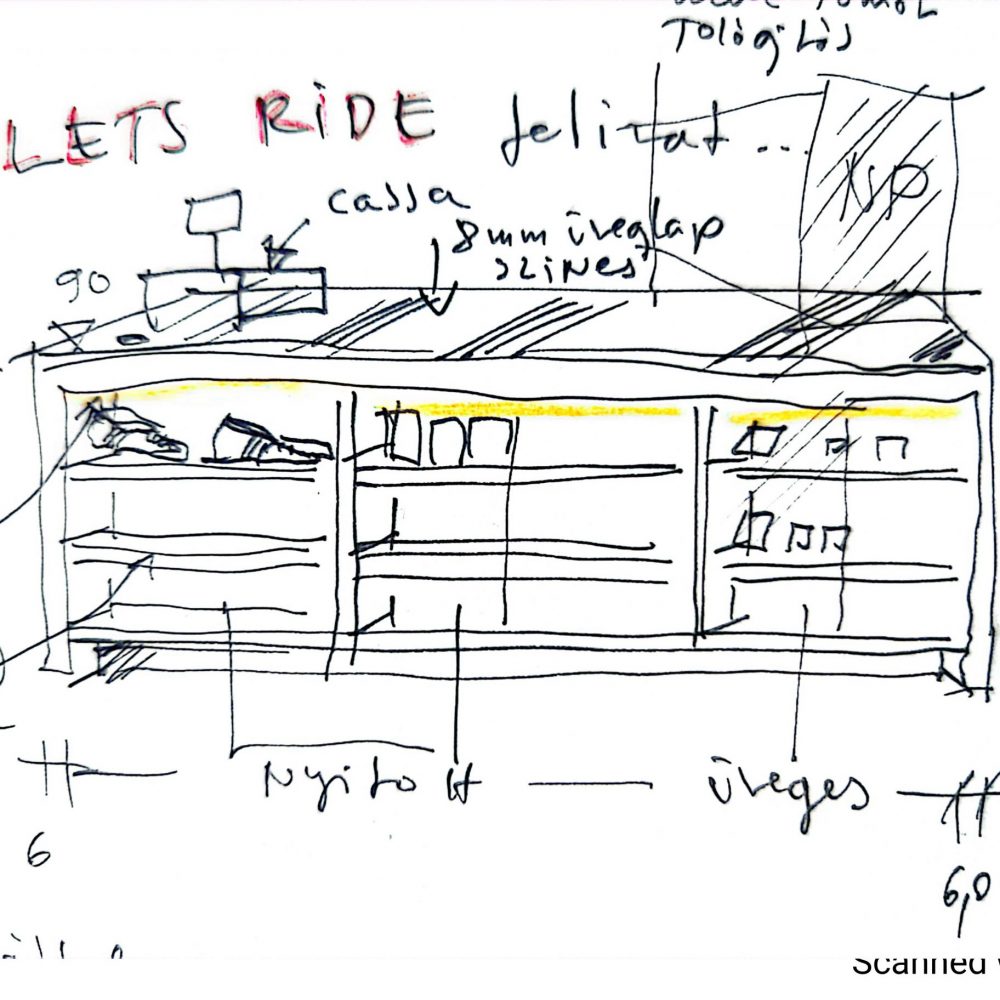 Tológlós
LETS RIDE felirat ...
cassa
8mm üveglap
színes
90
Nyitott — üveges
6
6,0
Scanned